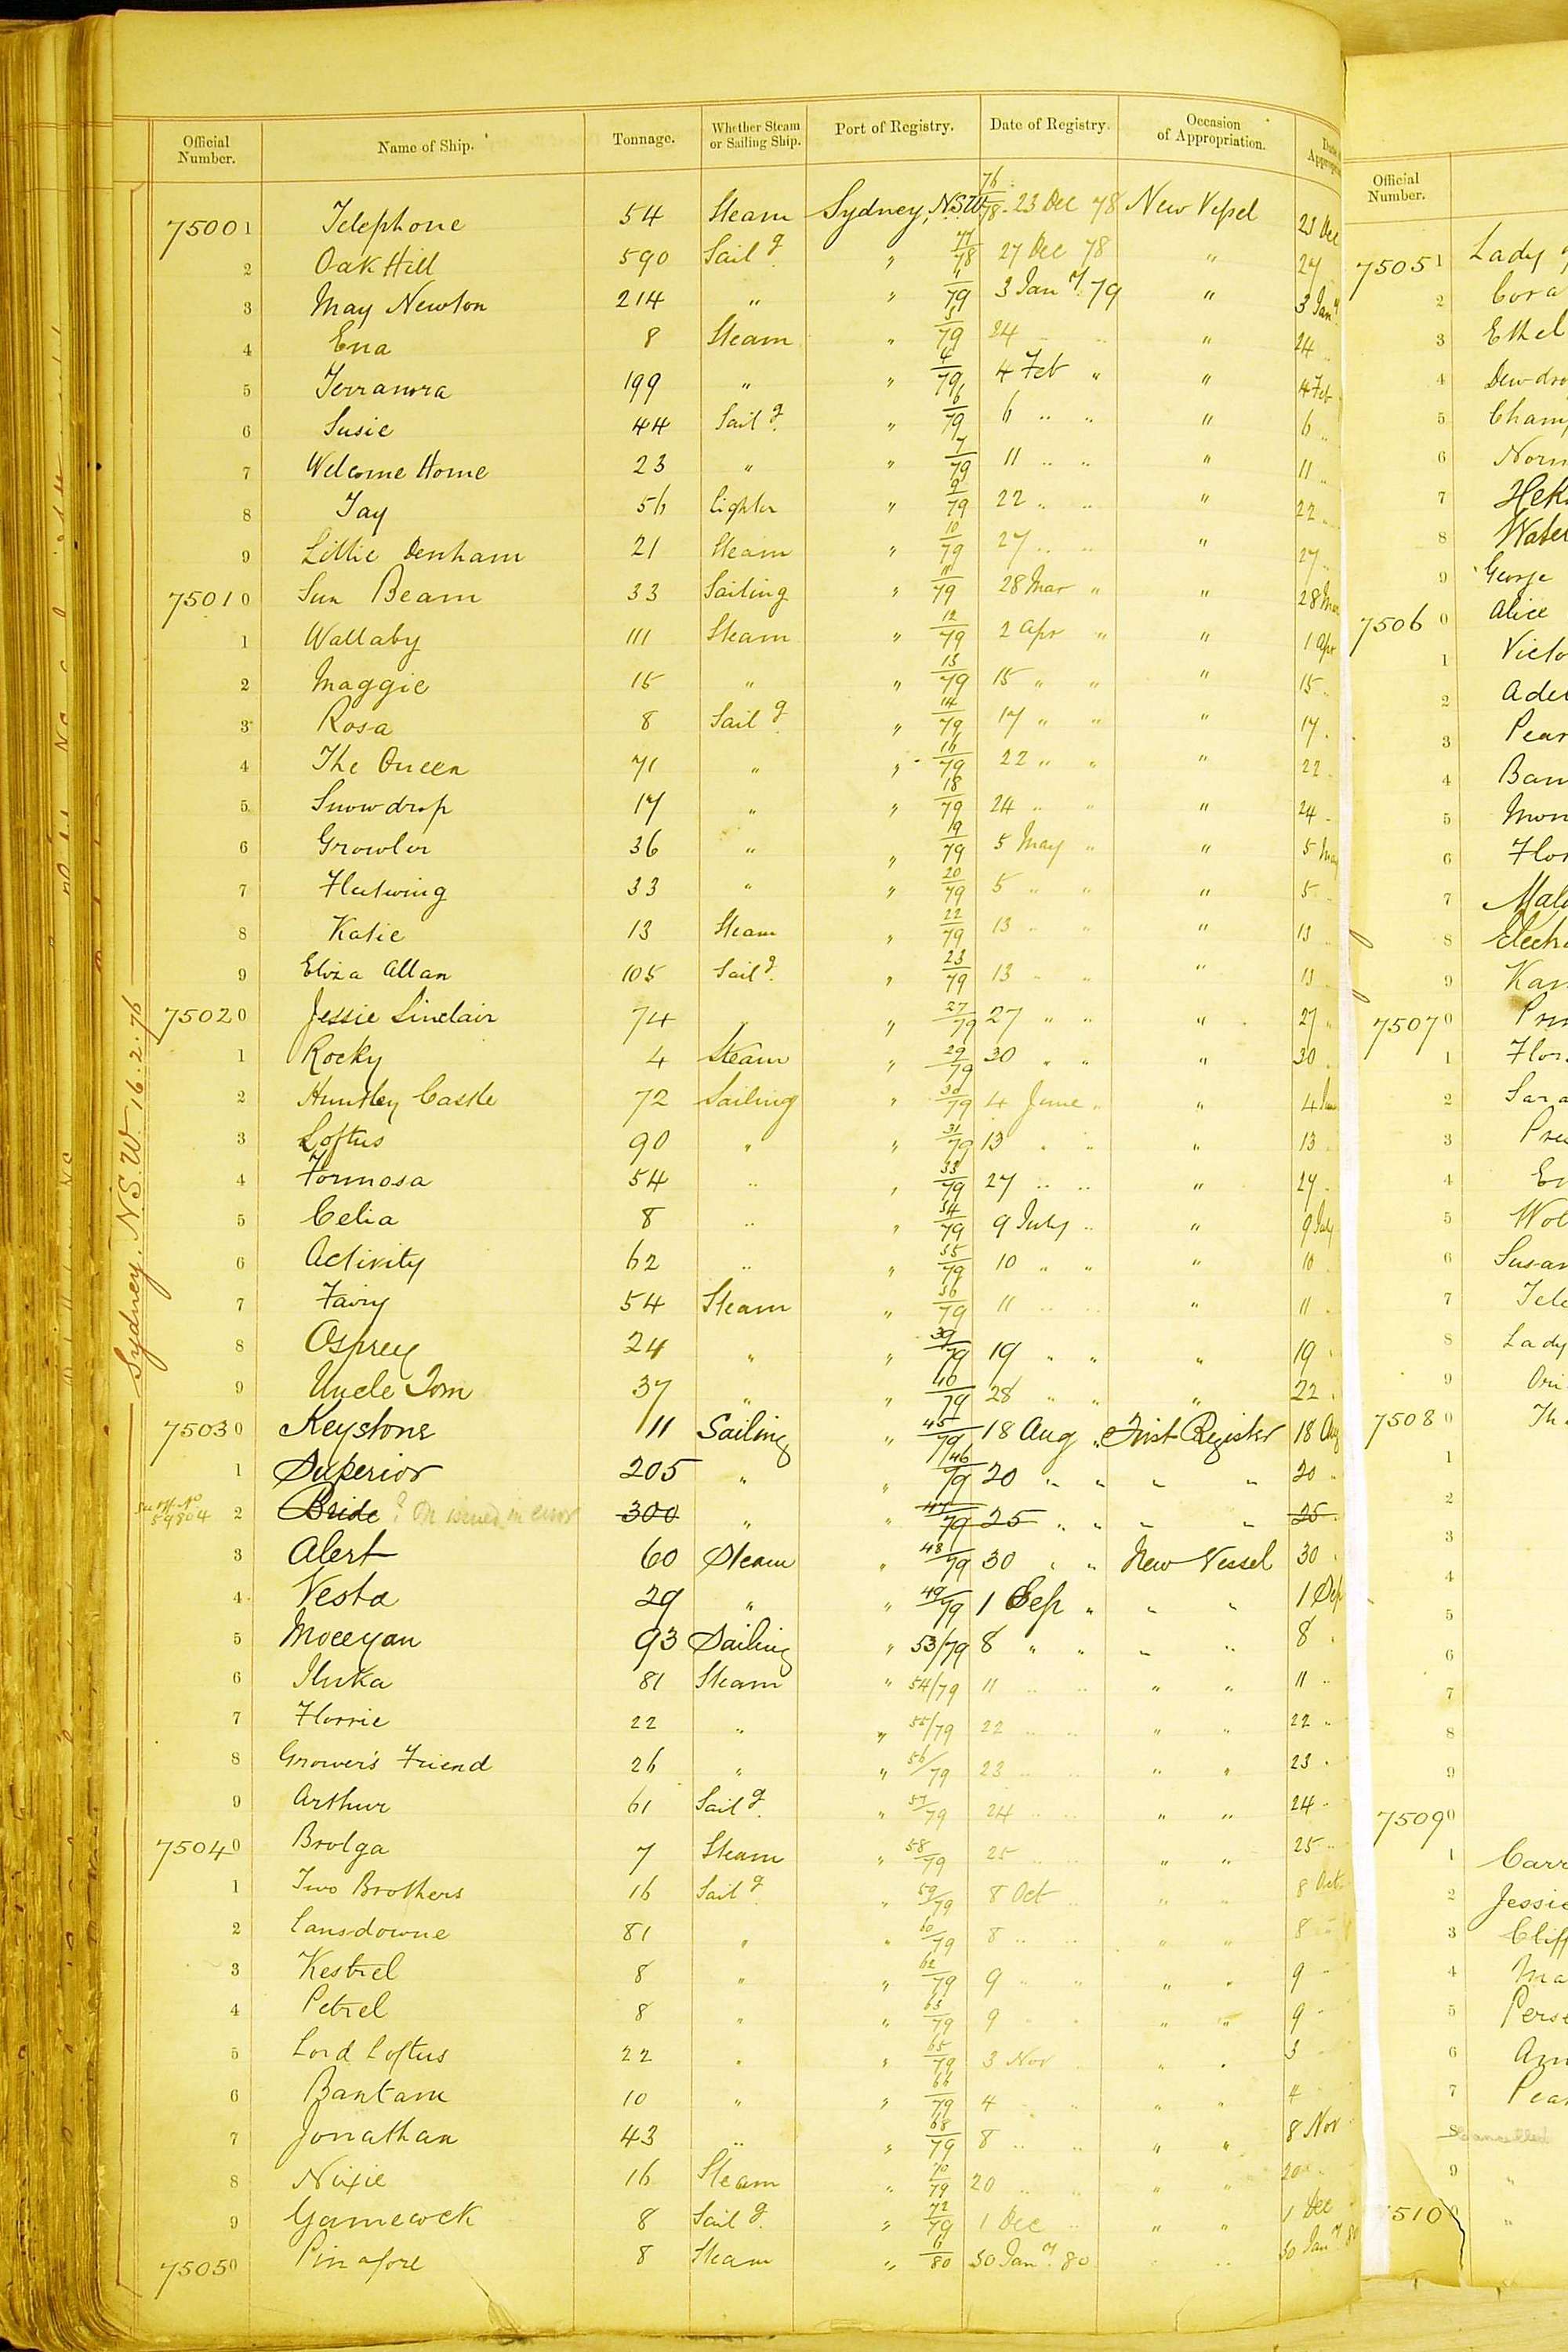 Official Number. Name of Ship. Tonnage. Whether Steam or Sailing Ship. Port of Registry. Date of Registry. Occasion of Appropriation.
75001 Telephone 54 Steam Sydney, NSW 76/78 23 Dec 78 New Vessel 23 Dec
2 Oak Hill 590 Sailg " 77/78 27 Dec 78 " 27
3 May Newton 214 " " 1/79 3 Jany 79 " 3 Jany
4 Ena 8 Steam " 3/79 24 " " 24
5 Terranora 199 " " 4/79 4 Feb " " 4 Feb
6 Susie 44 Sailg " 6/79 6 " " " 6
7 Welcome Home 23 " " 7/79 11 " " " 11
8 Jay 56 lighter " 9/79 22 " " " 22
9 Lillie Denham 21 Steam " 10/79 27 " " " 27
75010 Sun Beam 33 Sailing " 11/79 28 Mar " " 28 Mar
1 Wallaby 111 Steam " 12/79 2 Apr " " 1 Apr
2 Maggie 15 " " 13/79 15 " " " 15
3 Rosa 8 Sailg " 14/79 17 " " " 17
4 The Queen 71 " " 16/79 22 " " " 22
5 Snowdrop 17 " " 18/79 24 " " " 24
6 Growler 36 " " 19/79 5 May " " 5 May
7 Fleetwing 33 " " 20/79 5 " " " 5
8 Katie 13 Steam " 22/79 13 " " " 13
9 Eliza Allan 105 Sailg " 23/79 13 " " " 13
75020 Jessie Sinclair 74 " " 27/79 27 " " " 27
1 Rocky 4 Steam " 29/79 30 " " " 30
2 Huntley Castle 72 Sailing " 30/79 4 June " " 4 June
3 Loftus 90 " " 31/79 13 " " " 13
4 Formosa 54 " " 33/79 27 " " " 27
5 Celia 8 " " 34/79 9 July " " 9 July
6 Activity 62 " " 35/79 10 " " " 10
7 Fairy 54 Steam " 36/79 11 " " " 11
8 Osprey 24 " " 39/79 19 " " " 19
9 Uncle Tom 37 " " 40/79 28 " " " 22
75030 Keystone 11 Sailing " 45/79 18 Aug " First Register 18 Aug
1 Superior 205 " " 46/79 20 " " " " 20
2 Bride ? issued in error 300 " " 47/79 25 " " " " 25
3 Alert 60 Steam " 48/79 30 " " New Vessel 30
4 Vesta 29 " " 49/79 1 Sep " " " 1 Sep
5 93 Sailing " 53/79 8 " " " " 8
6 Iluka 81 Steam " 54/79 11 " " " " 11
7 Florrie 22 " " 55/79 22 " " " " 22
8 Grower's Friend 26 " " 56/79 23 " " " " 23
9 Arthur 61 Sailg " 57/79 24 " " " " 24
75040 Brolga 7 Steam " 58/79 25 " " " " 25
1 Two Brothers 16 Sailg " 59/79 8 Oct " " " 8 Oct
2 Lansdowne 81 " " 60/79 8 " " " " 8
3 Kestrel 8 " " 62/79 9 " " " " 9
4 Petrel 8 " " 63/79 9 " " " " 9
5 Lord Loftus 22 " " 65/79 3 Nov " " " 3
6 Bantam 10 " " 66/79 4 " " " " 4
7 Jonathan 43 " " 68/79 8 " " " " 8 Nov
8 Nixie 16 Steam " 70/79 20 " " " " 20
9 Gamecock 8 Sailg " 72/79 1 Dec " " " 1 Dec
75050 Pinafore 8 Steam " 6/80 30 Jany 80 " " 30 Jany 80
Sydney, N.S.W. 16.2.76
Official Number.
75051 Lady
2 Cora
3 Ethel
4 Dewdro
5 Cham
6 Norm
7
8 Water
9 George
75060 Alice
1 Victo
2 Ade
3 Pear
4 Ban
5
6 Flor
7 Mal
8 Electr
9 Kan
75070
1 Flor
2 Sara
3 Pre
4
5 Wol
6 Susan
7 Tele
8 Lady
9 Ori
75080 Th
1
2
3
4
5
6
7
8
9
75090
1 Carr
2 Jessie
3 Cliff
4 Ma
5 Perse
6 Am
7 Pear
8 Cancelled
9 "
5100 "